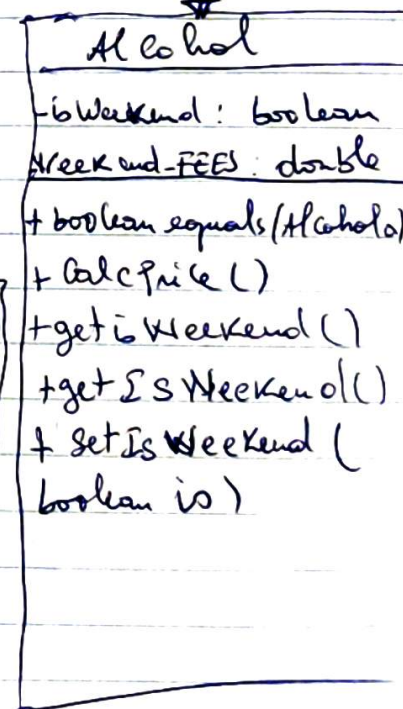 Alcohol
-isWeekend: boolean
Weekend-FEES: double
+ boolean equals(Alcohol a)
+ CalcPrice()
+getisWeekend()
+getIsWeekend()
+ SetIsWeekend(
boolean is)